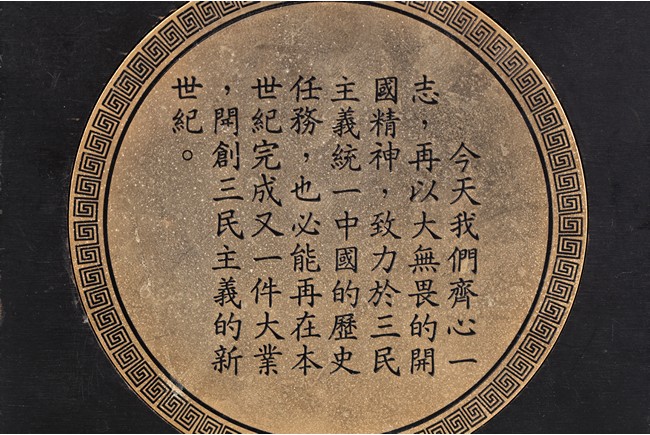 今天我們齊心一
志，再以大無畏的開
國精神，致力於三民
主義統一中國的歷史
任務，也必能再在本
世紀完成又一件大業
，開創三民主義的新
世紀。